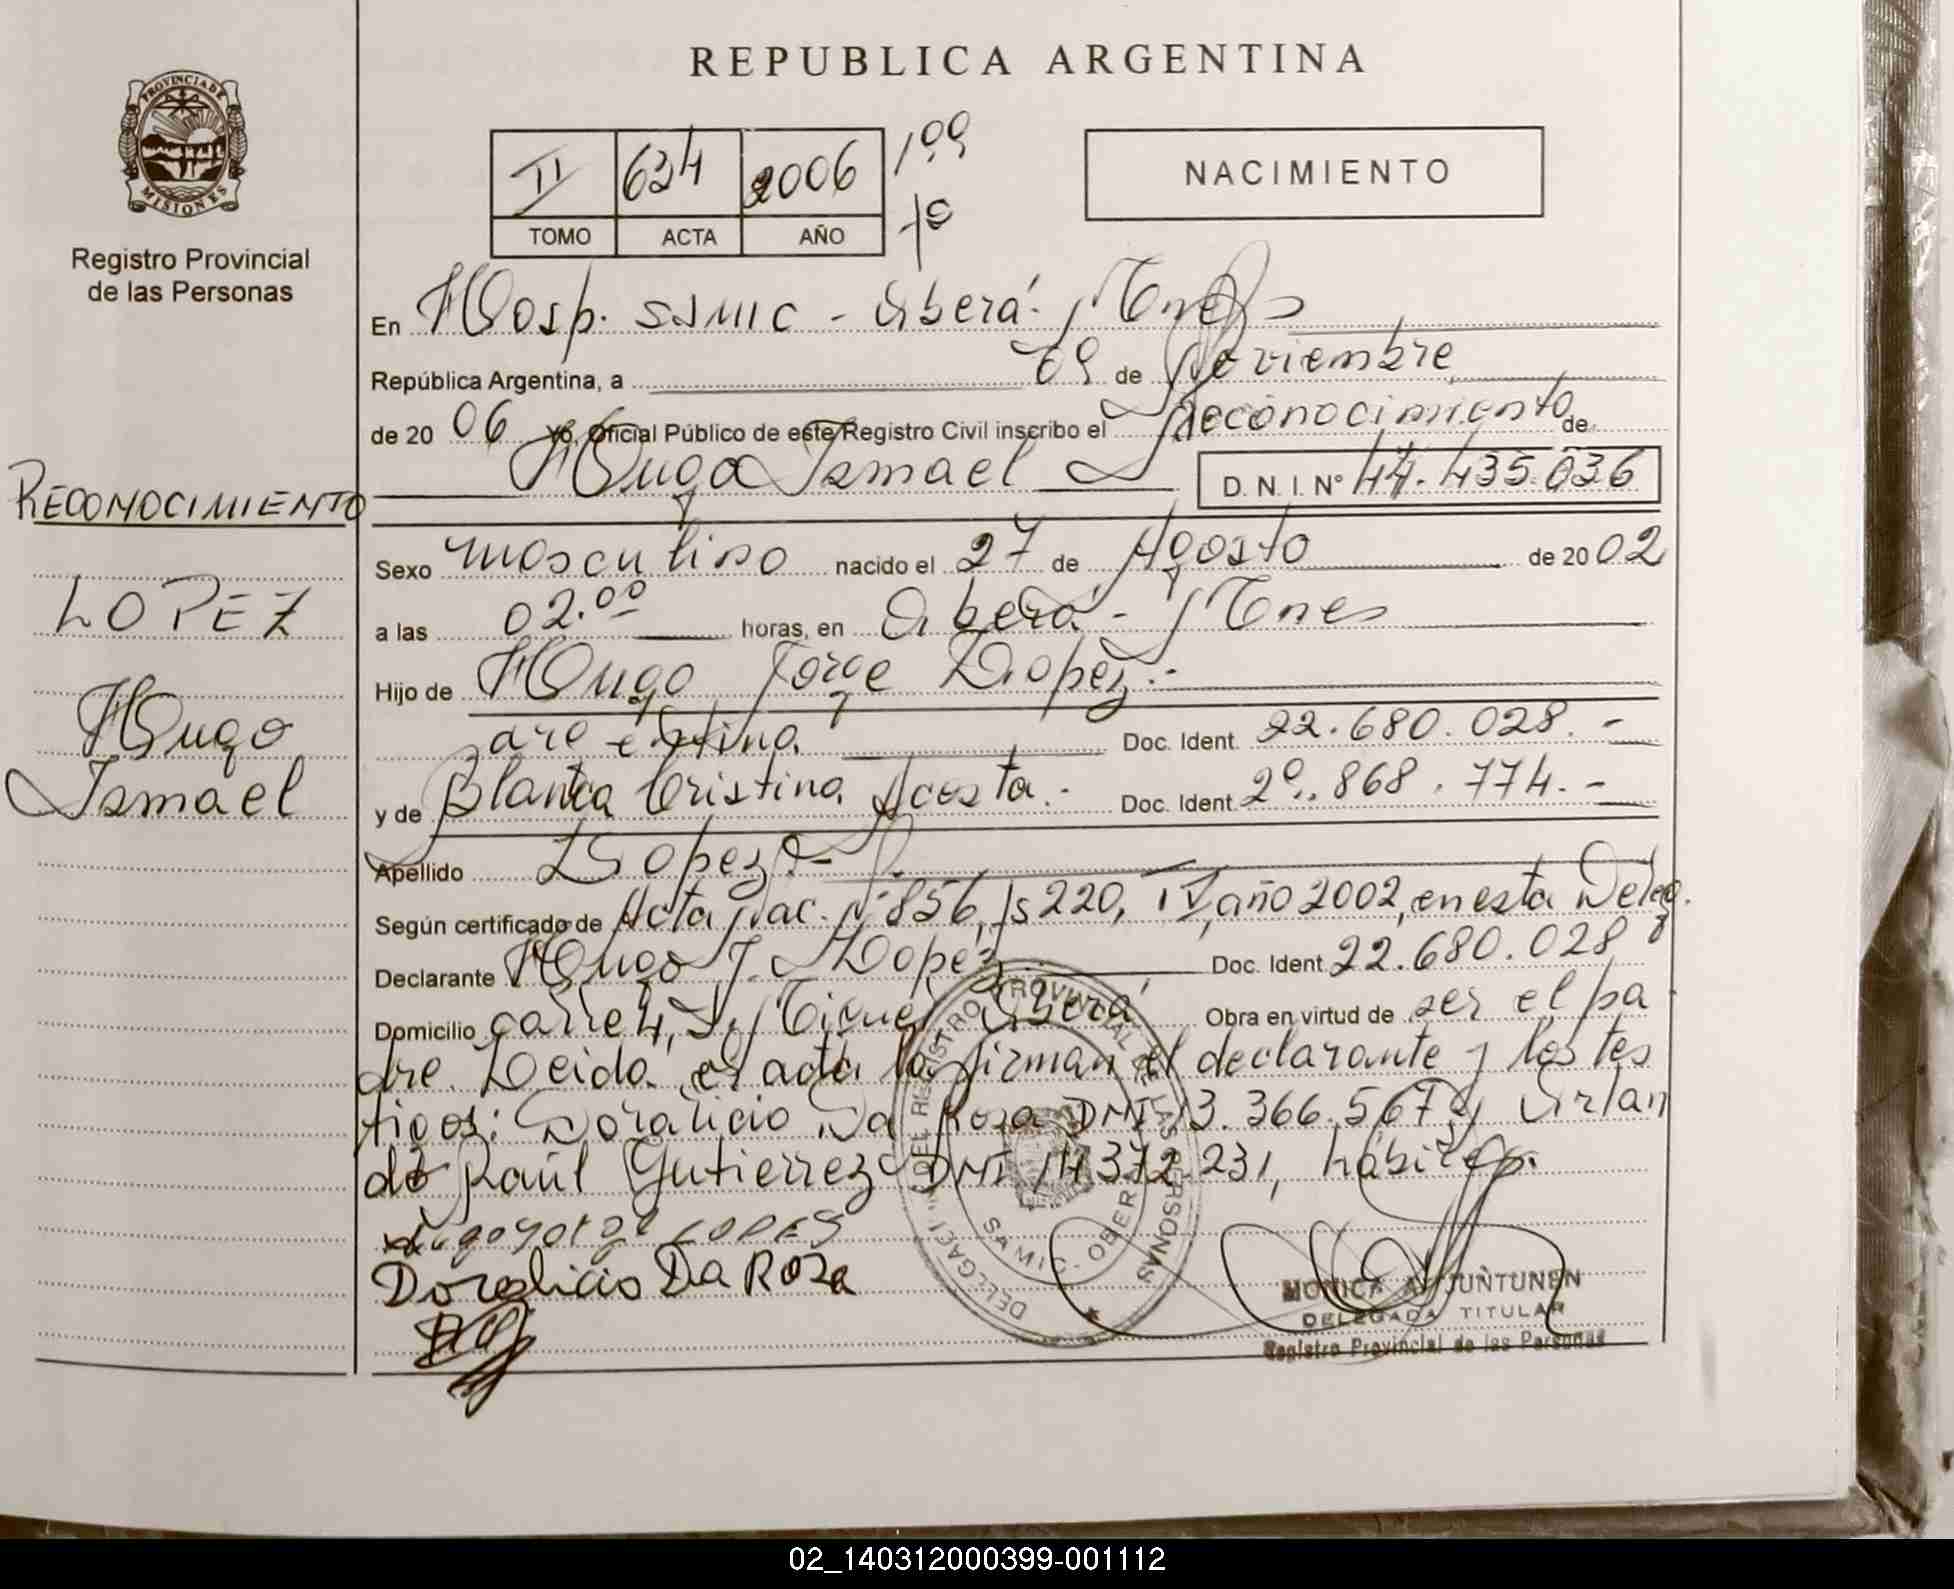 REPUBLICA ARGENTINA
PROVINCIA DE
MISIONES
Registro Provincial
de las Personas
II 634 2006 1º9
TOMO ACTA AÑO
NACIMIENTO
En Hosp. SAMIC - Oberá - Mnes
República Argentina, a 09 de Noviembre
de 20 06 Yo, Oficial Público de este Registro Civil inscribo el Reconocimiento de
Hugo Ismael D.N.I. Nº 44.435.036
RECONOCIMIENTO
LOPEZ
Hugo
Ismael
Sexo masculino nacido el 27 de Agosto de 20 02
a las 02.00 horas, en Oberá - Mnes
Hijo de Hugo Jorge Lopez.-
argentina Doc. Ident. 22.680.028.-
y de Blanca Cristina Acosta.- Doc. Ident. 20.868.774.-
Apellido Lopez.-
Según certificado de Acta Nac. Nº 856, Fs 220, año 2002, en esta Deleg.
Declarante Hugo J. Lopez Doc. Ident. 22.680.028
Domicilio Oberá Obra en virtud de ser el pa
dre. Leida el acta la firman el declarante y los tes
tigos: Doralicio Da Rosa DNI 13.366.567 y Orlan
do Raúl Gutierrez DNI 14.372.231, hábiles.
LOPES
Doralicio Da Rosa
REGISTRO PROVINCIAL DE LAS PERSONAS
SAMIC - OBERA
MONICA A. JUÑTUNEN
DELEGADA TITULAR
Registro Provincial de las Personas
02_140312000399-001112